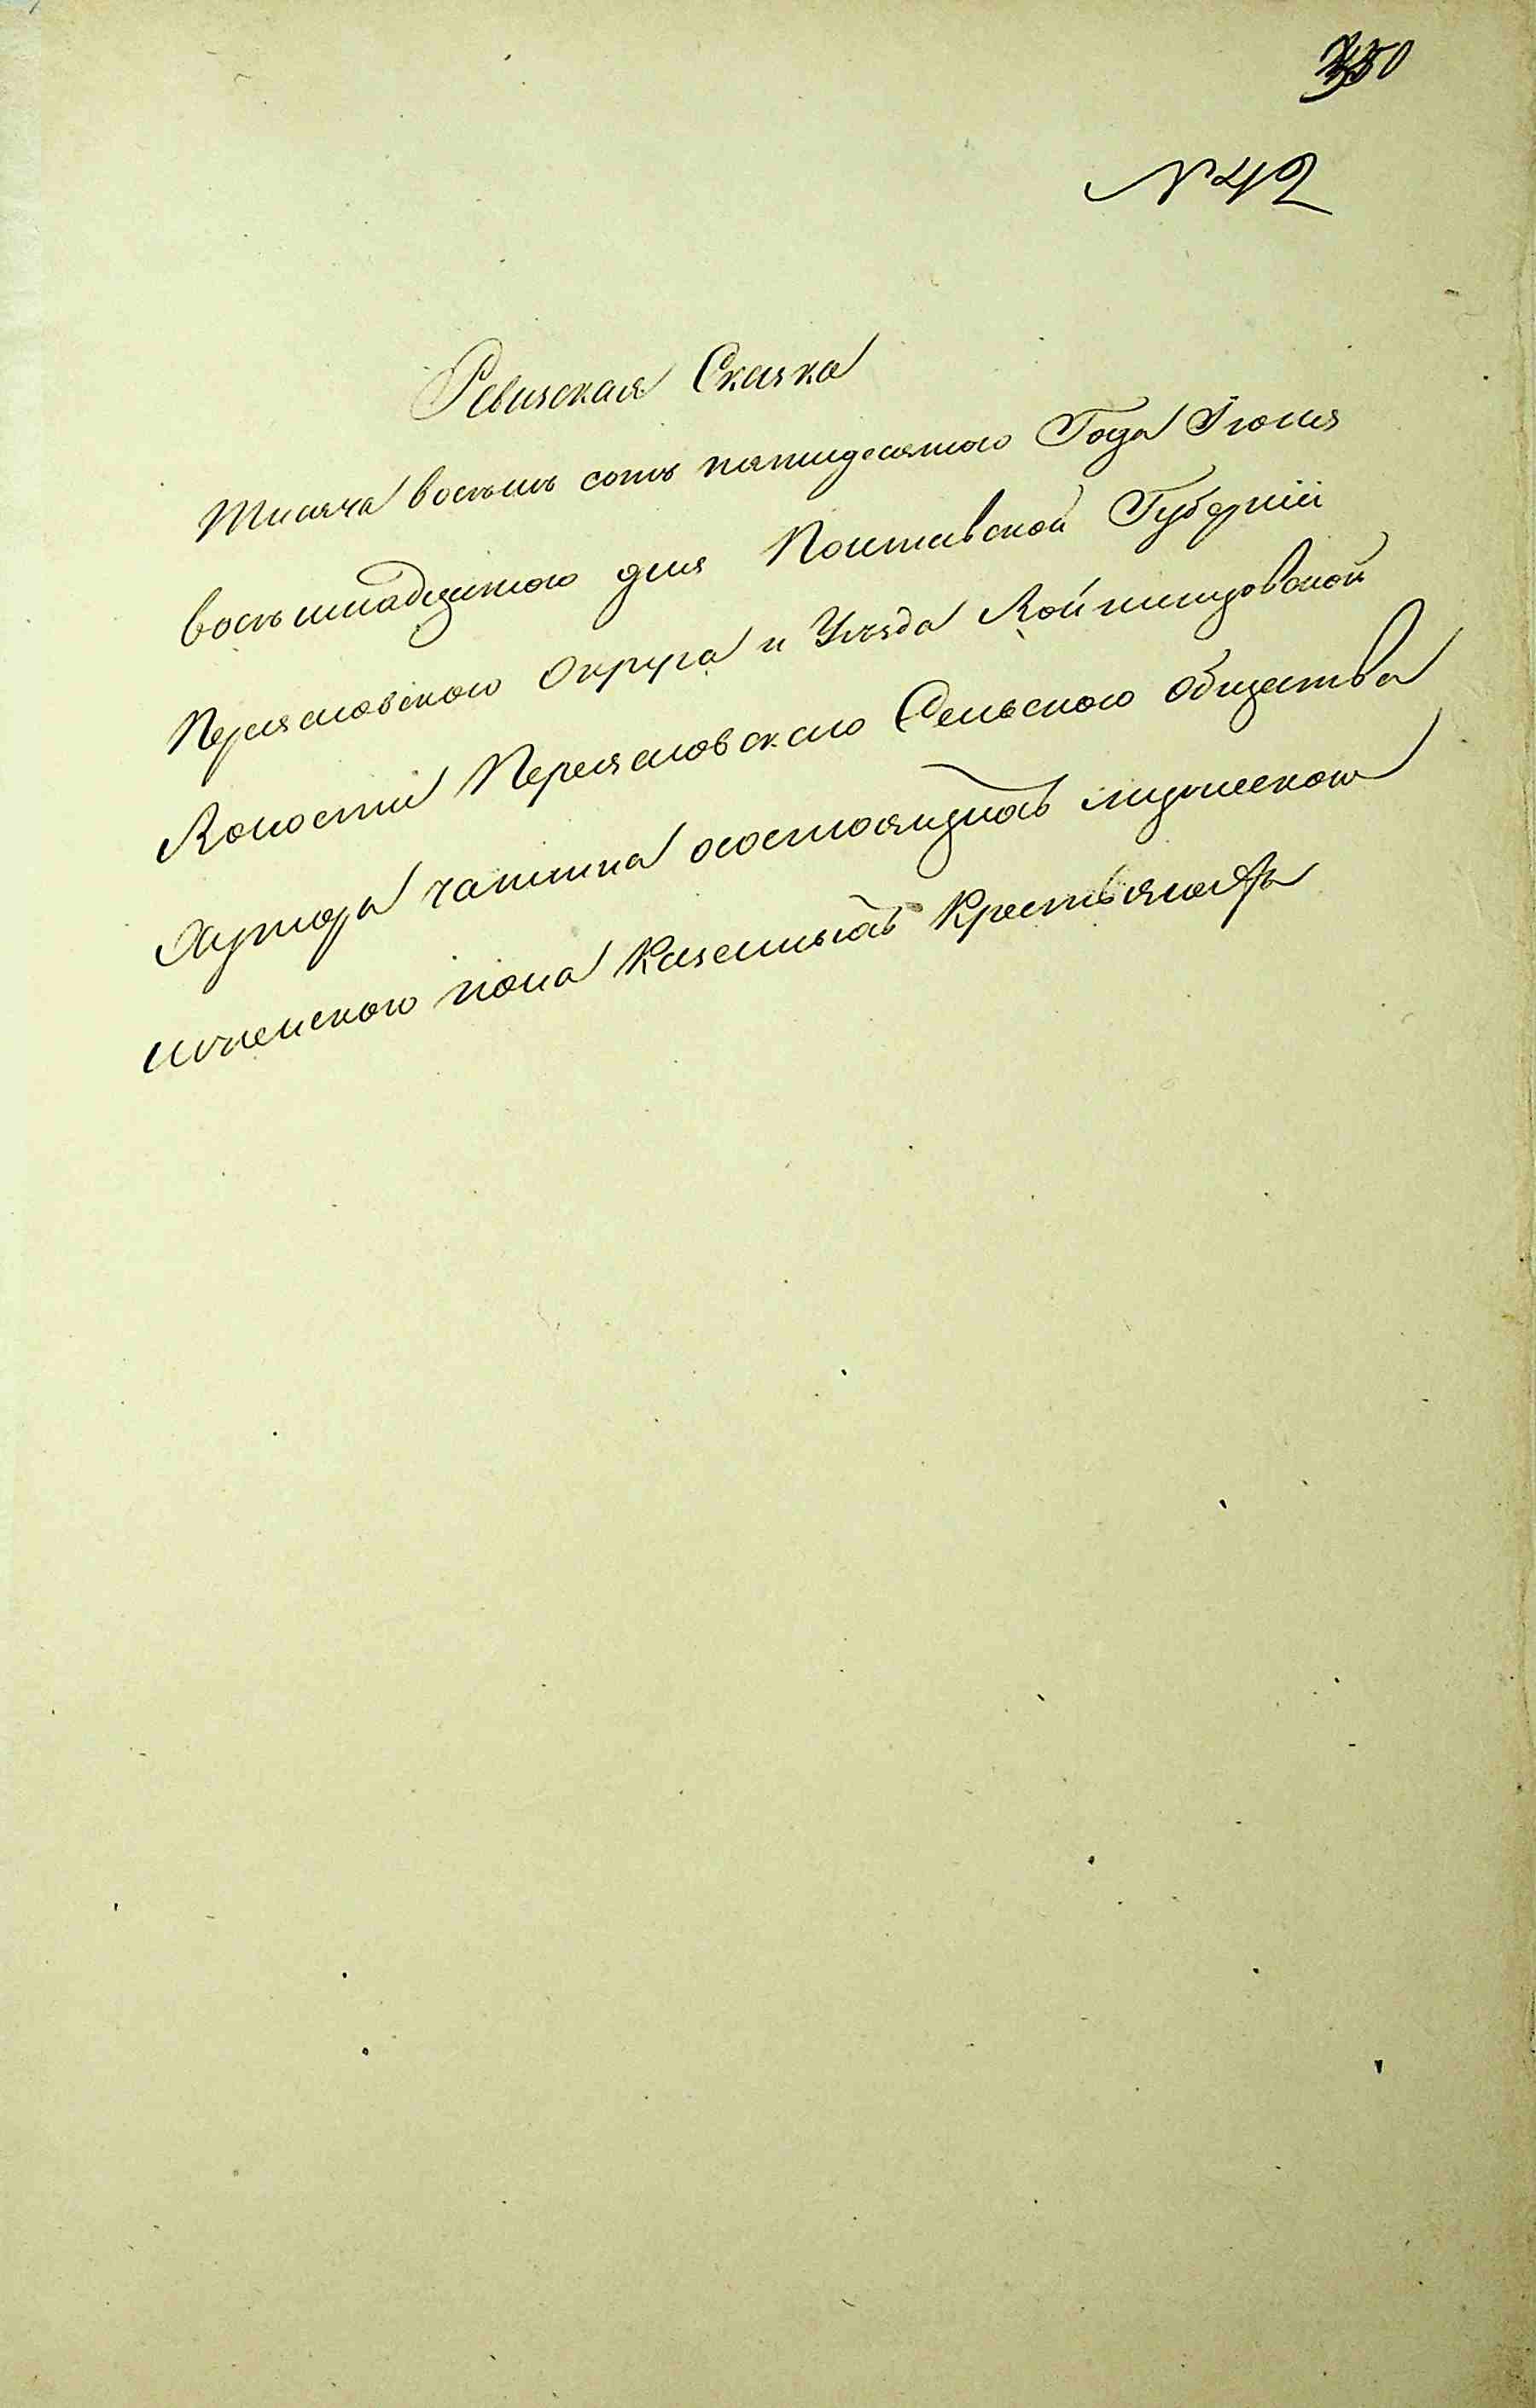 № 42
Ревизская Сказка
Тисяча восемь сотъ пятидесятого Года Іюня
восьмнадцятого дня Полтавской Губерніи
Переясловского Округа и Уезда Войтовцовской
Волости Переясловского Сельского общества
Хутора Чапина осостоящихъ мужеского
и женского пола Казенныхъ Крестьянахъ